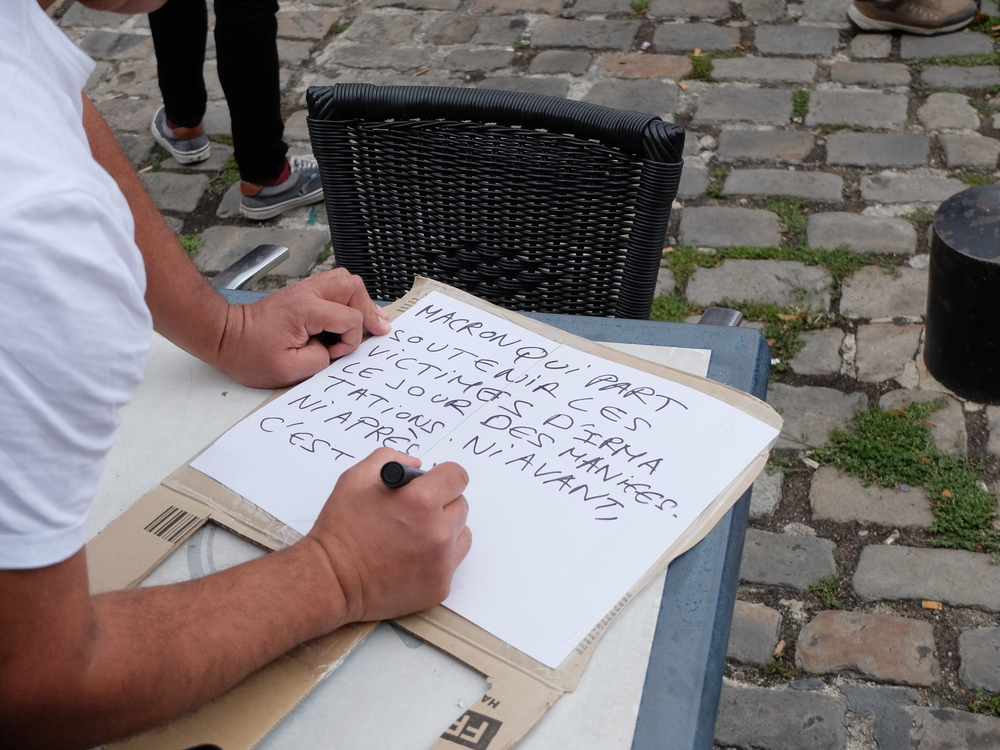 MACRON QUI PART
SOUTENIR LES
VICTIMES D'IRMA
LE JOUR DES MANIFES.
TATIONS. NI AVANT,
NI APRÈS.
C'EST